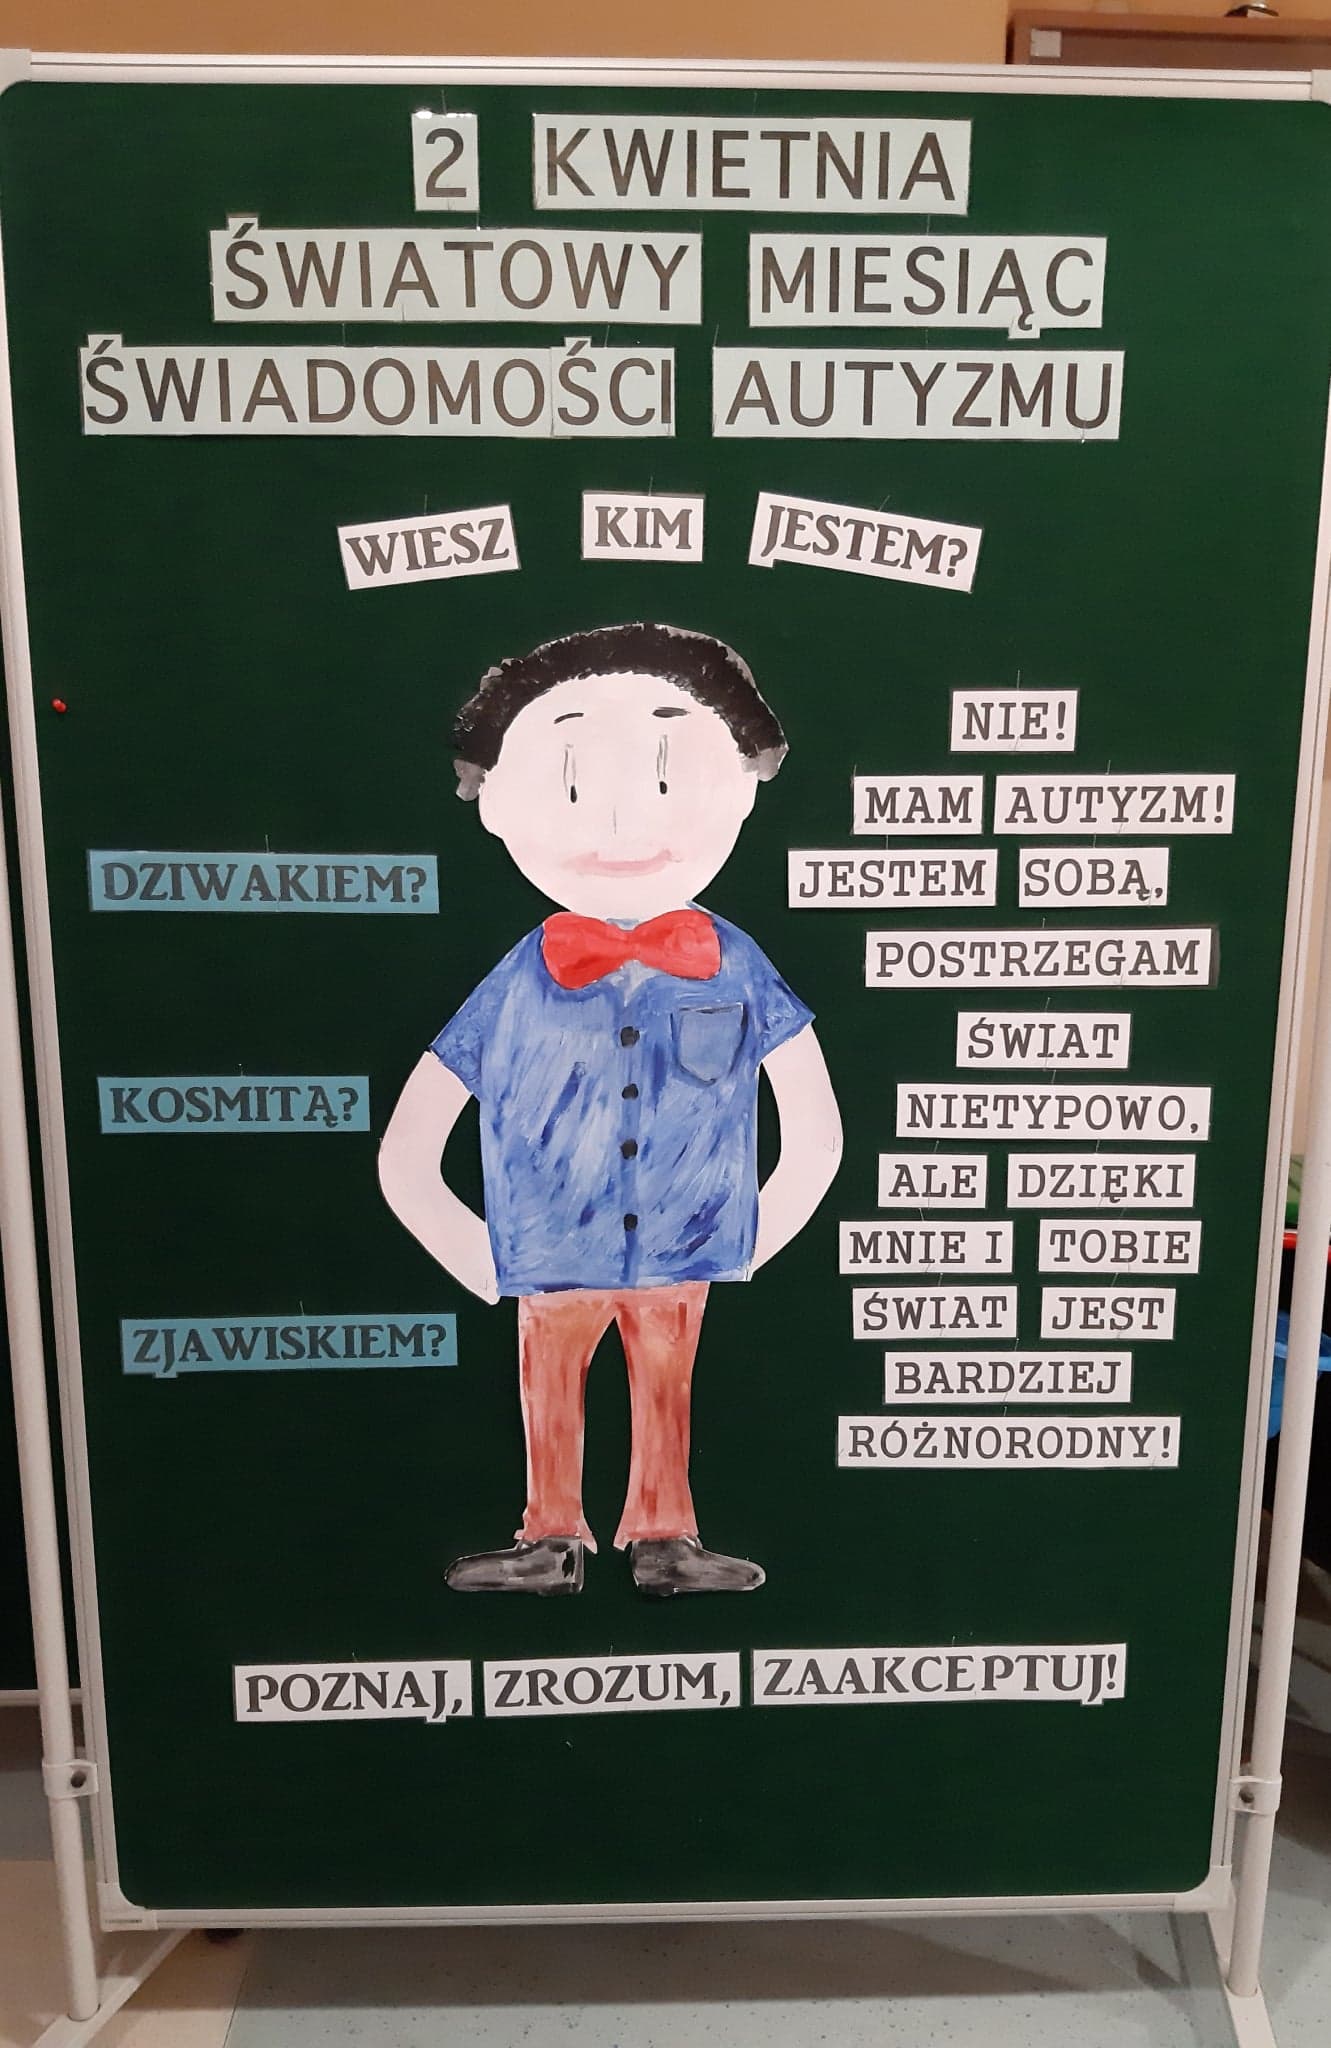 2 KWIETNIA
ŚWIATOWY MIESIĄC
ŚWIADOMOŚCI AUTYZMU
WIESZ KIM JESTEM?
DZIWAKIEM?
KOSMITĄ?
ZJAWISKIEM?
NIE!
MAM AUTYZM!
JESTEM SOBĄ,
POSTRZEGAM
ŚWIAT
NIETYPOWO,
ALE DZIĘKI
MNIE I TOBIE
ŚWIAT JEST
BARDZIEJ
RÓŻNORODNY!
POZNAJ, ZROZUM, ZAAKCEPTUJ!